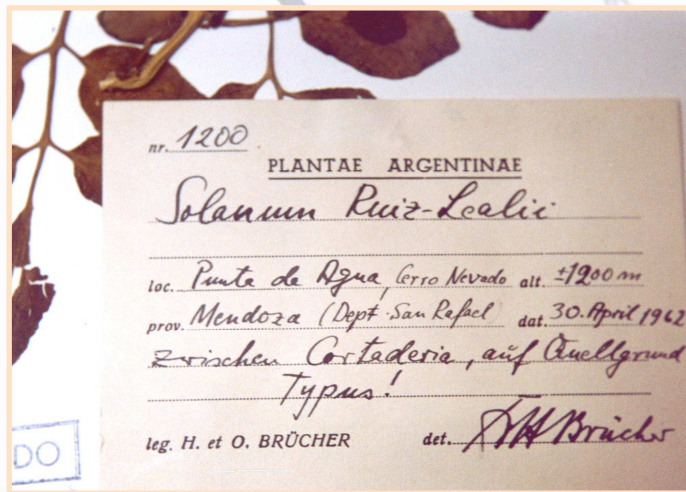 nr. 1200
PLANTAE ARGENTINAE
Solanum Ruiz-Lealii
loc. Punta de Agua, Cerro Nevado alt. ±1200 m
prov. Mendoza (Dept. San Rafael dat. 30. April 1962
zwischen Cortaderia, auf Quellgrund
Typus!
leg. H. et O. BRÜCHER det. Dr H Brücher
DO